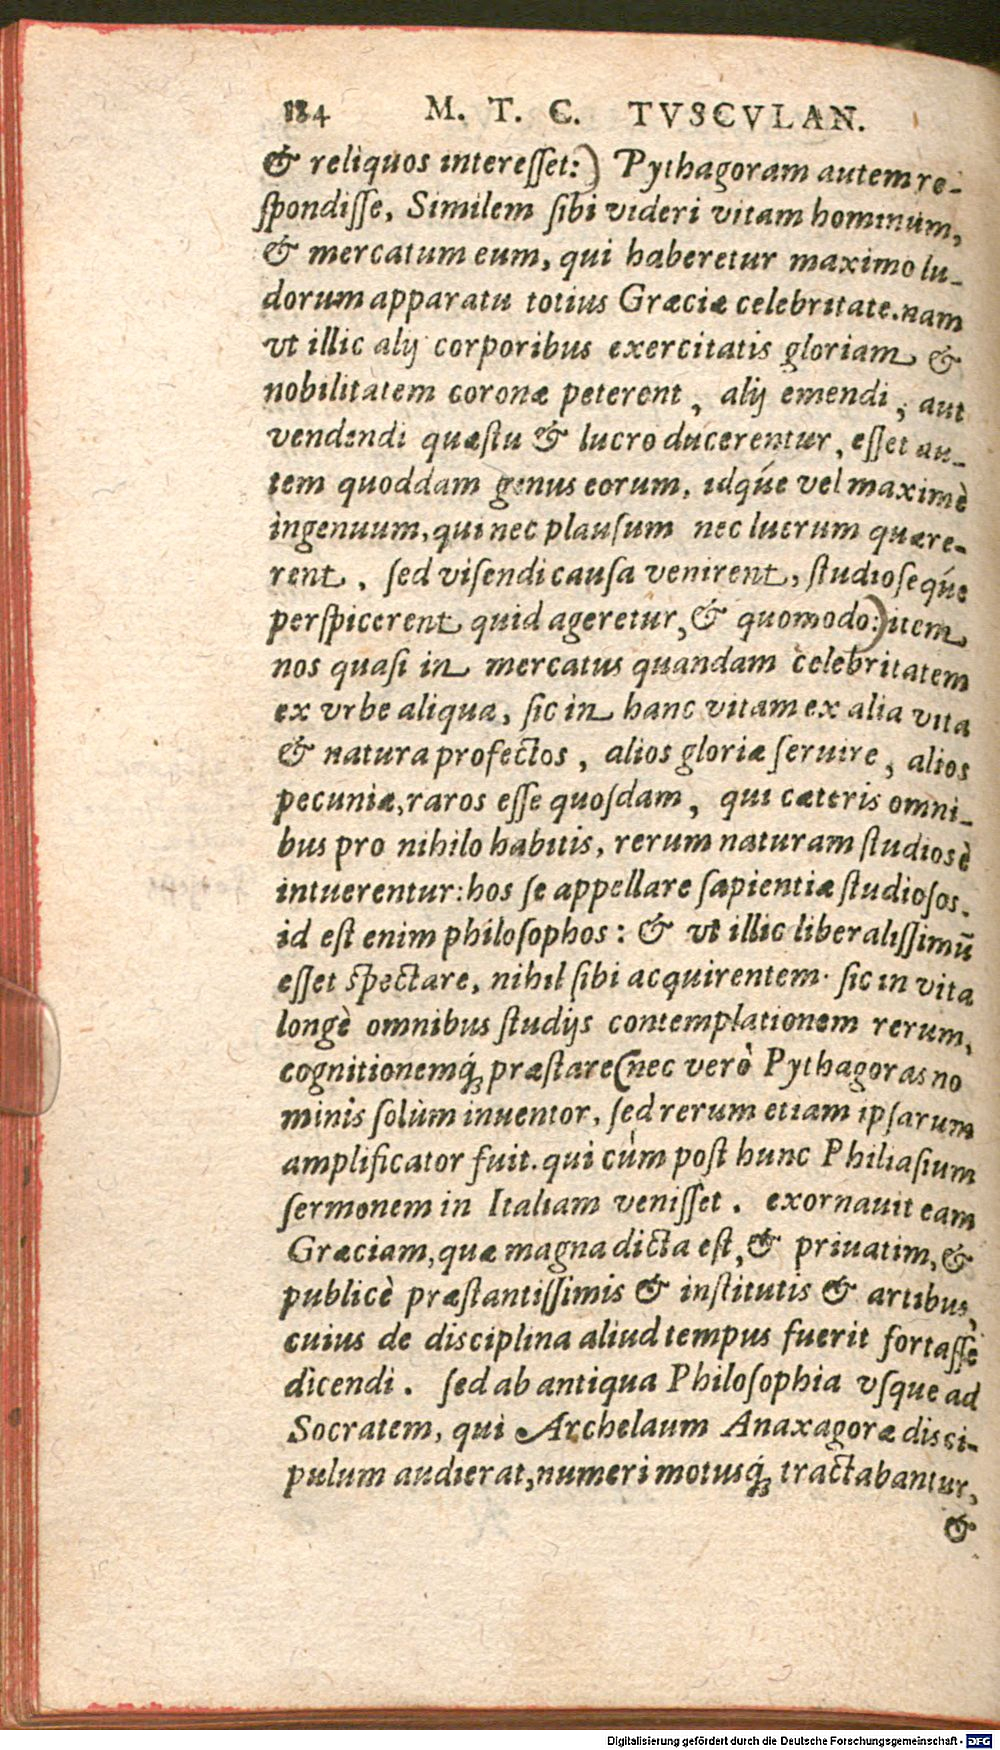 184 M. T. C. TVSCVLAN.
& reliquos interesset:) Pythagoram autem re-
spondisse, Similem sibi videri vitam hominum,
& mercatum eum, qui haberetur maximo lu-
dorum apparatu totius Græciæ celebritate. nam
vt illic alij corporibus exercitatis gloriam &
nobilitatem coronæ peterent, alij emendi, aut
vendendi quæstu & lucro ducerentur, esset au-
tem quoddam genus eorum, idq́ue vel maximè
ingenuum, qui nec plausum nec lucrum quære-
rent, sed visendi causa venirent, studioseq́ue
perspicerent quid ageretur, & quomodo:) item
nos quasi in mercatus quandam celebritatem
ex vrbe aliqua, sic in hanc vitam ex alia vita
& natura profectos, alios gloriæ seruire, alios
pecuniæ, raros esse quosdam, qui cæteris omni-
bus pro nihilo habitis, rerum naturam studiosè
intuerentur: hos se appellare sapientiæ studiosos.
id est enim philosophos: & vt illic liberalissimū
esset spectare, nihil sibi acquirentem· sic in vita
longè omnibus studijs contemplationem rerum,
cognitionemq́; præstare (nec verò Pythagoras no
minis solùm inuentor, sed rerum etiam ipsarum
amplificator fuit. qui cùm post hunc Philiasium
sermonem in Italiam venisset. exornauit eam
Græciam, quæ magna dicta est, & priuatim, &
publicè præstantissimis & institutis & artibus,
cuius de disciplina aliud tempus fuerit fortasse
dicendi. sed ab antiqua Philosophia vsque ad
Socratem, qui Archelaum Anaxagoræ disci-
pulum audierat, numeri motusq́; tractabantur,
&
Digitalisierung gefördert durch die Deutsche Forschungsgemeinschaft - DFG